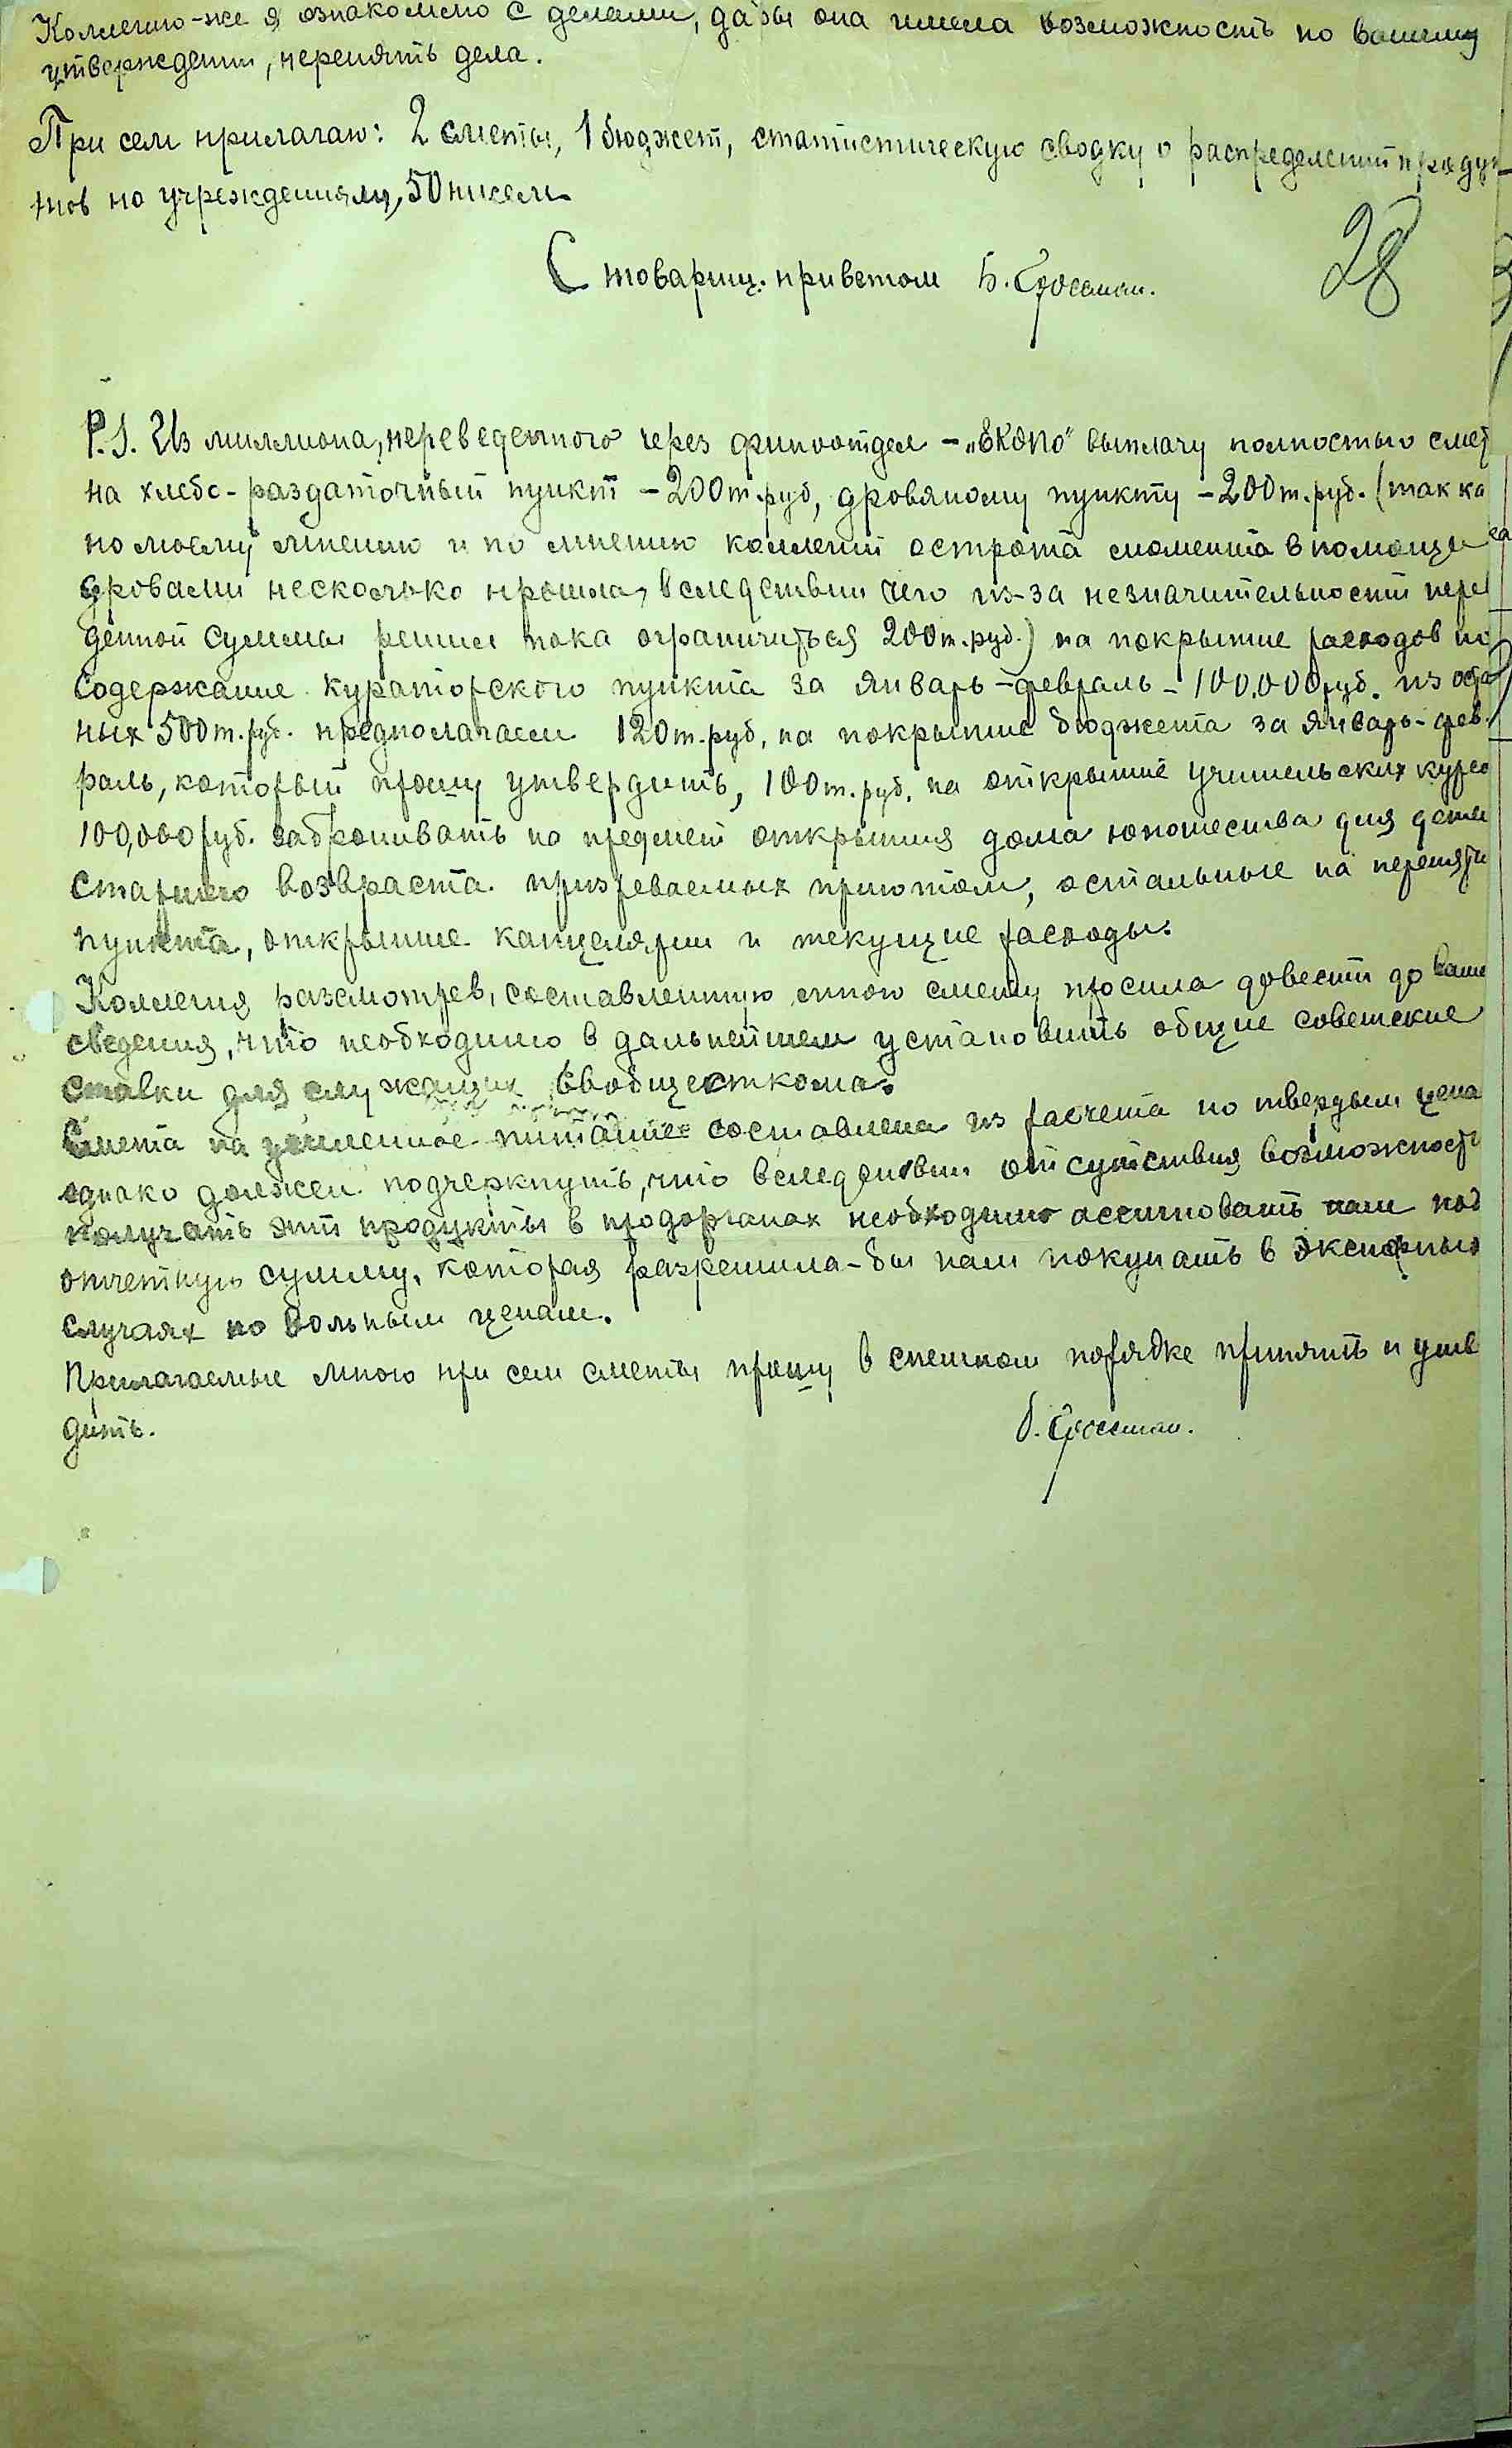 Коллегию-же я ознакомлю с делами, дабы она имела возможность по вашему
утверждении, перенять дела.
При сем прилагаю: 2 сметы, 1 бюджет, статистическую сводку о распределении продук-
тов по учреждениям, 50 писем
С товарищ. приветом Б. Гроссман.
28
P.S. Из миллиона, переведенного через финотдел - „ЕКОПО" выплачу полностью смет
на хлебо-раздаточный пункт - 200 т. руб, дровяному пункту - 200 т. руб. (так ка
по моему мнению и по мнению коллегии острота момента в помощи
дровами несколько прошла, вследствии чего из-за незначительности пере
денной суммы решил пока ограничиться 200 т. руб.) на покрытие расходов по
содержание кураторского пункта за январь-февраль - 100,000 руб. из оста
ных 500 т. руб. предполагаем 120 т. руб, на покрытие бюджета за январь-фев-
раль, который прошу утвердить, 100 т. руб. на открытие учительских курсо
100,000 руб. забронивать на предмет открытия дома юношества для дете
старшего возвраста призреваемых приютом, остальные на перенятие
пункта, открытие канцелярии и текущие расходы.
Коллегия разсмотрев, составленную мною смету просила довести до ваше
сведения, что необходимо в дальнейшем установить общие советские
ставки для служащих Евобщесткома.
Смета на усиленное питание составлена из расчета по твердым цена
однако должен подчеркнуть, что вследствии отсутствия возможност
получать эти продукты в продорганах необходимо ассигновать нам под
отчетную сумму, которая разрешила-бы нам покупать в экстрены
случаях по вольным ценам.
Прилагаемые мною при сем сметы прошу в спешном порядке принять и утв
дить.
Б. Гроссман.